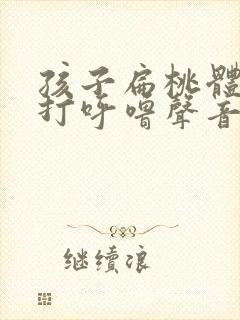 孩子扁桃體
打呼嚕聲音
继续浪